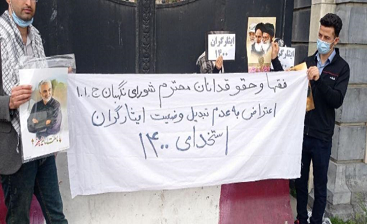 ایثارگران
۱۴۰۰
ایثارگران
فقها و حقوقدانان محترم شورای نگهبان ج.ا.ا
اعتراض به عدم تبدیل وضعیت ایثارگران
استخدای ۱۴۰۰